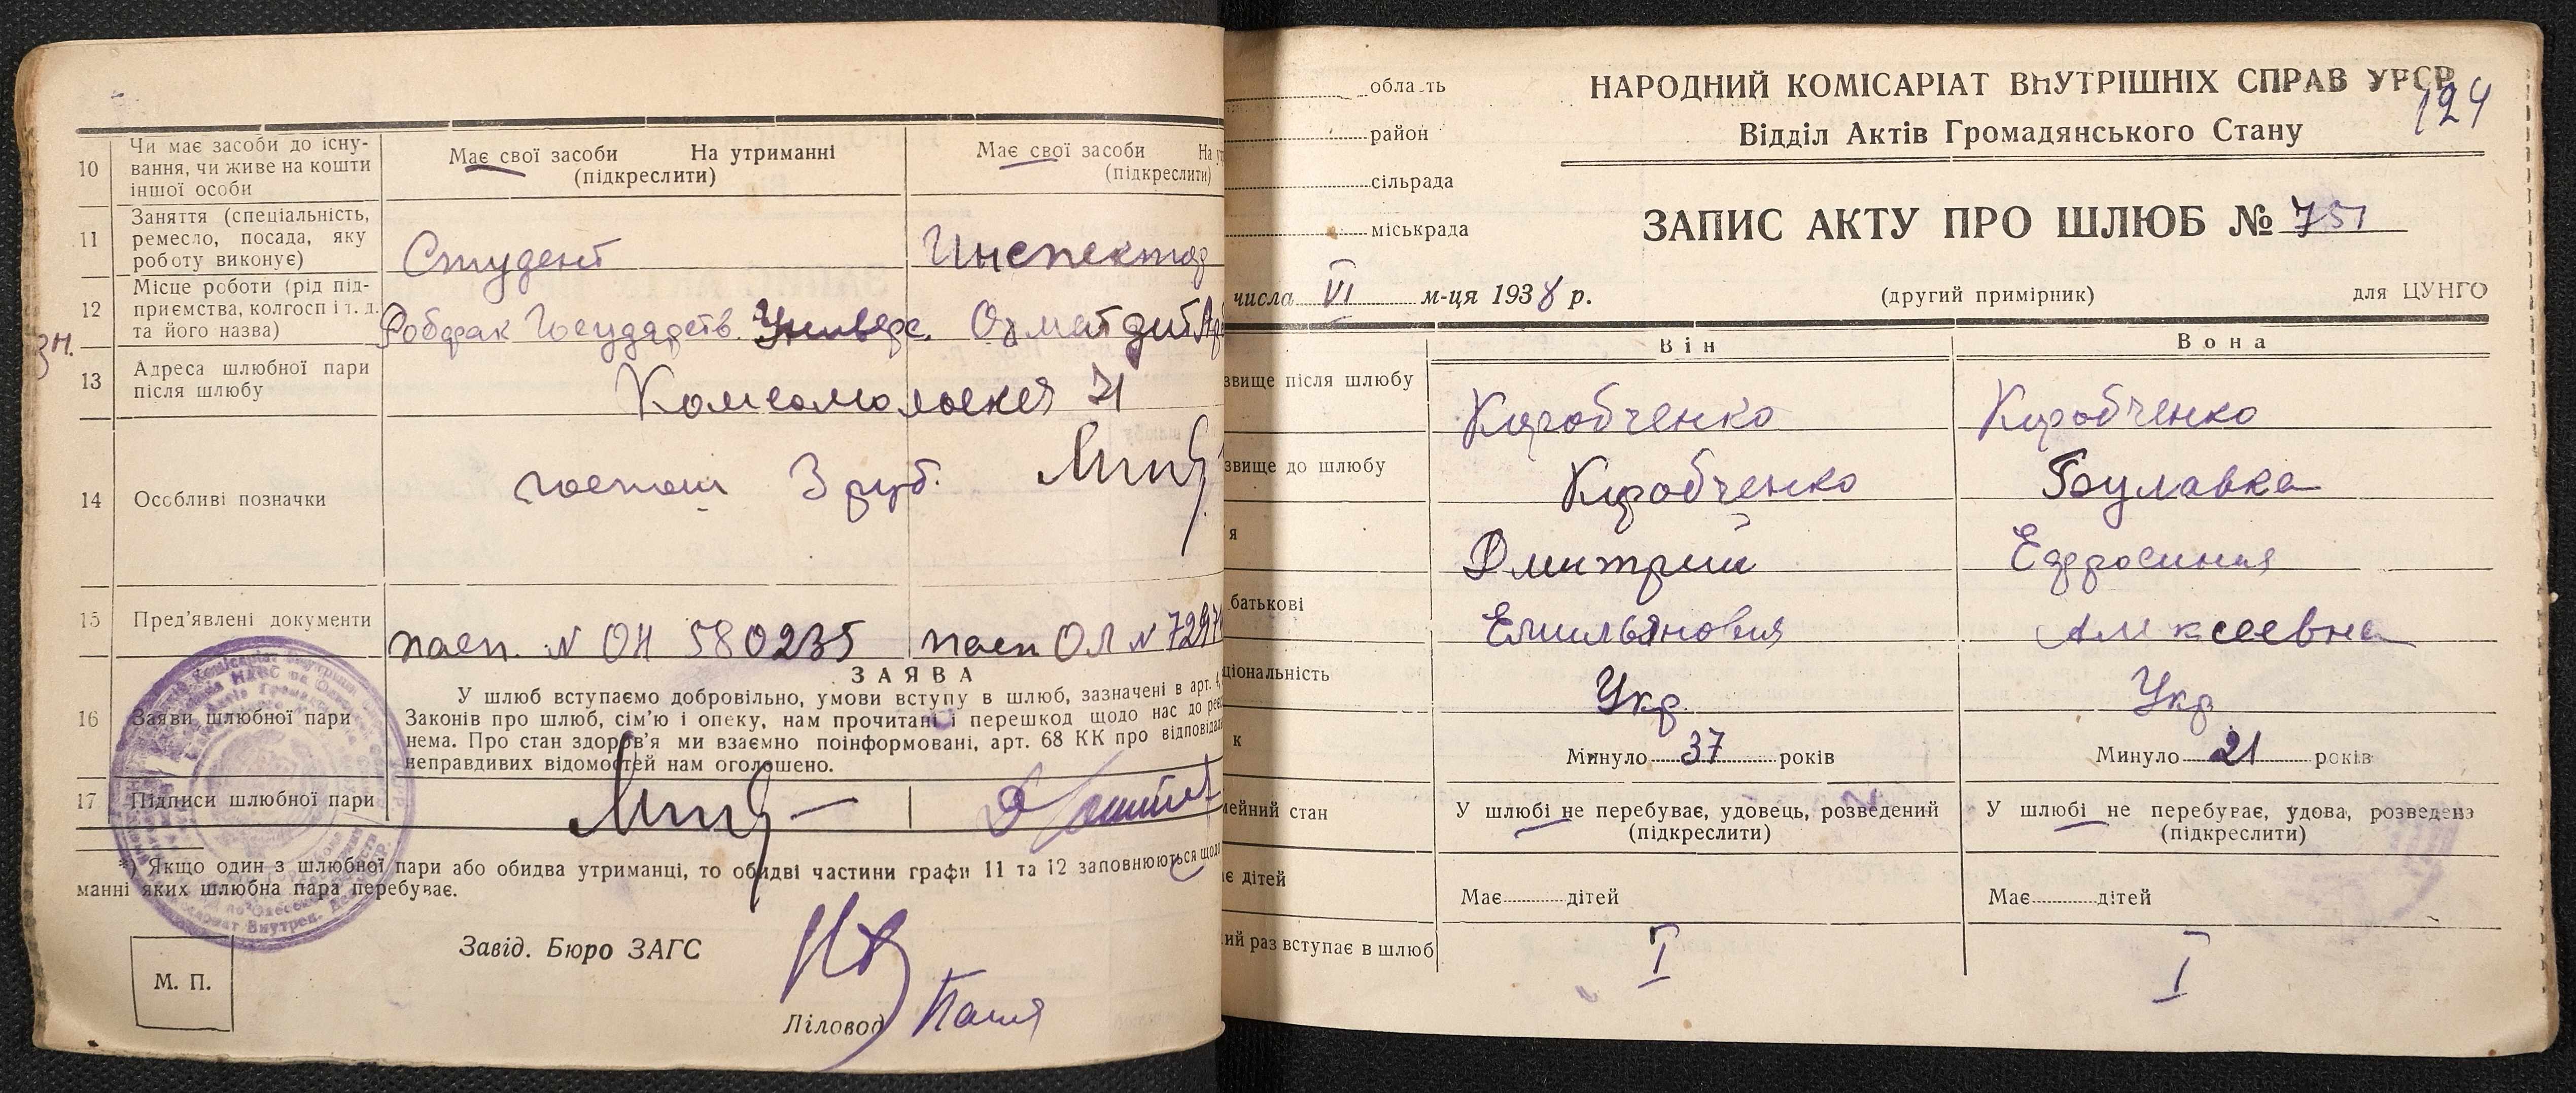 10
Чи має засоби до існу-
вання, чи живе на кошти
іншої особи
Має свої засоби На утриманні
(підкреслити)
Має свої засоби На
(підкреслити)
11
Заняття (спеціальність,
ремесло, посада, яку
роботу виконує)
Студент
Инспектор
12
Місце роботи (рід під-
приємства, колгосп і т. д.
та його назва)
Робфак Государств. Универс.
Охматдит
зн.
13
Адреса шлюбної пари
після шлюбу
Комсомольская 71
14
Особливі позначки
госпош 3 руб.
15
Пред'явлені документи
пасп. N ОН 580235
пасп ОЛ N 7297
16
Заяви шлюбної пари
ЗАЯВА
У шлюб вступаємо добровільно, умови вступу в шлюб, зазначені в арт. 4,
Законів про шлюб, сім'ю і опеку, нам прочитані і перешкод щодо нас до
нема. Про стан здоров'я ми взаємно поінформовані, арт. 68 КК про
неправдивих відомостей нам оголошено.
17
Підписи шлюбної пари
*) Якщо один з шлюбної пари або обидва утриманці, то обидві частини графи 11 та 12 заповнюються щодо
манні яких шлюбна пара перебуває.
Завід. Бюро ЗАГС
М. П.
Діловод
область
район
сільрада
міськрада
НАРОДНИЙ КОМІСАРІАТ ВНУТРІШНІХ СПРАВ УРСР
124
Відділ Актів Громадянського Стану
ЗАПИС АКТУ ПРО ШЛЮБ № 751
числа VI м-ця 1938 р.
(другий примірник)
для ЦУНГО
Він
Вона
звище після шлюбу
Коробченко
Коробченко
звище до шлюбу
Коробченко
Булавка
я
Дмитрий
Ефросиния
батькові
Емильянович
Алексеевна
ціональність
Укр
Укр
к
Минуло 37 років
Минуло 21 років
мейний стан
У шлюбі не перебуває, удовець, розведений
(підкреслити)
У шлюбі не перебуває, удова, розведена
(підкреслити)
є дітей
Має дітей
Має дітей
ий раз вступає в шлюб
I
I